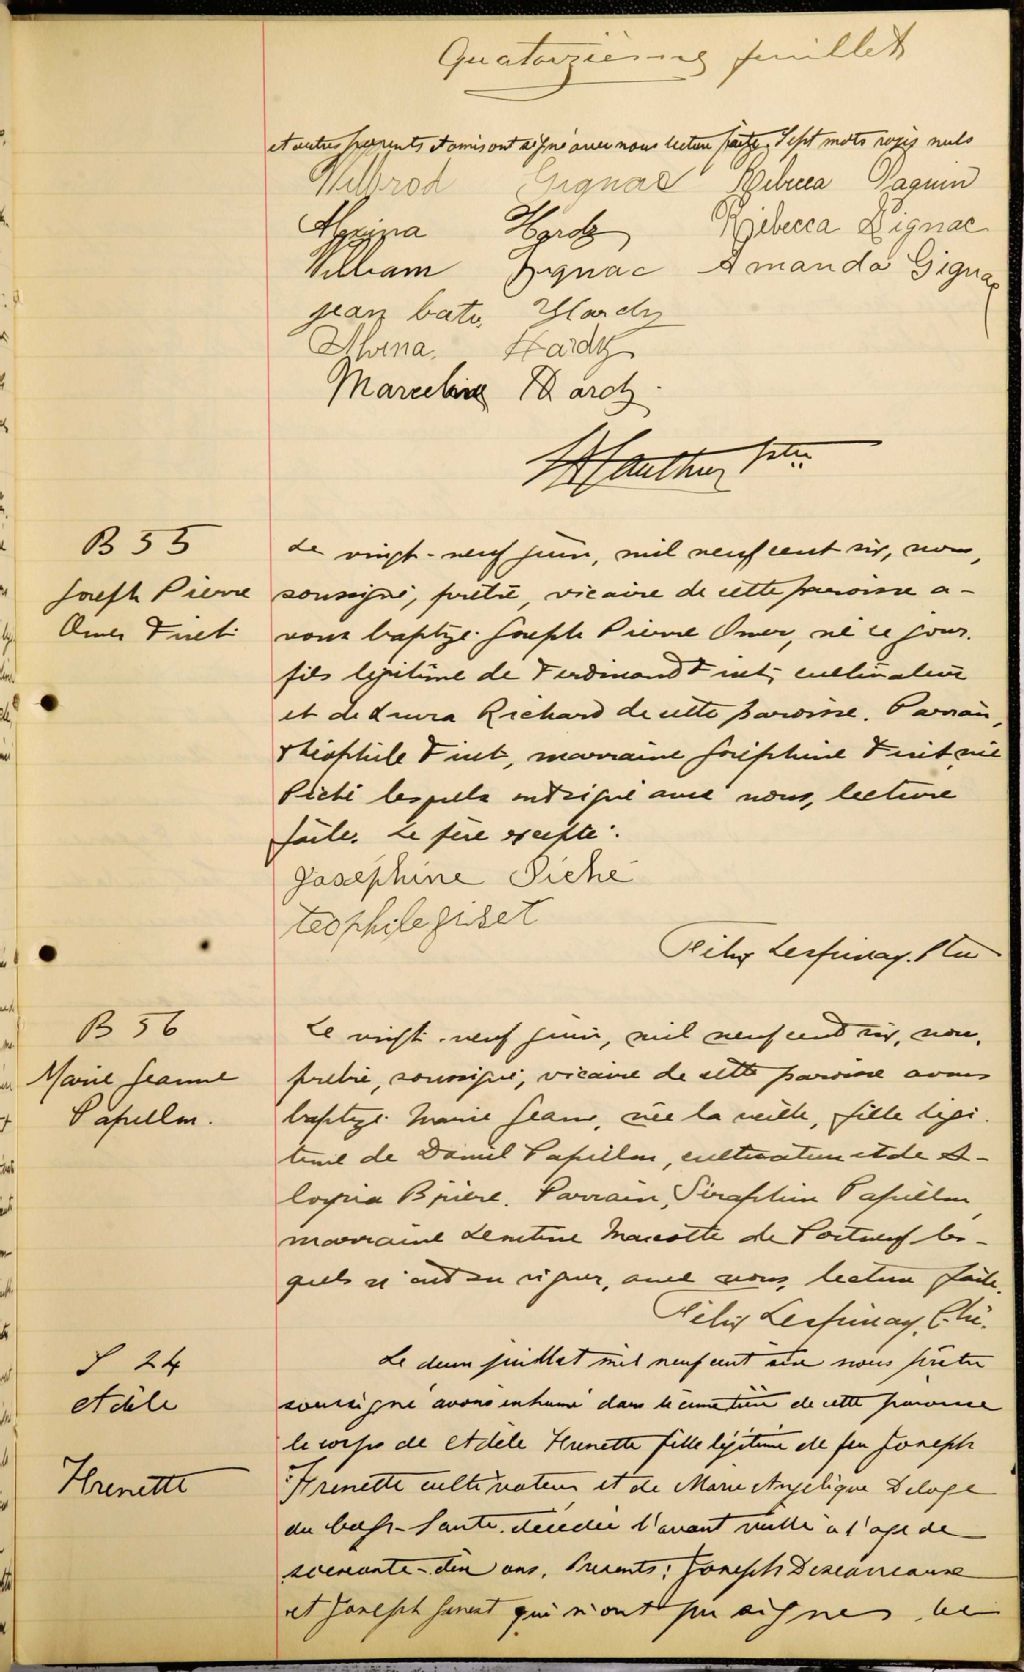 Quatorzième feuillet
et autres parents et amis ont signé avec nous lecture faite. Sept mots rayés nuls
Wilbrod Gignac Rebecca Paquin
Alexina Hardy Rebecca Gignac
William Gignac Amanda Gignac
jean bate. Hardy
Alvina Hardy
Marceline Hardy.
Gauthier ptre
B 55
Joseph Pierre
Omer
Le vingt-neuf juin, mil neuf cent six, nous,
soussigné, prêtre, vicaire de cette paroisse a-
vons baptizé Joseph Pierre Omer, né ce jour.
fils légitime de Ferdinand cultivateur
et de Laura Richard de cette paroisse. Parrain,
Théophile marraine Joséphine née
Piché lesquels ont signé avec nous, lecture
faite. Le père excepté.
Joséphine Piché
teophile
Félix Lespinay. Ptre
B 56
Marie Jeanne
Papillon.
Le vingt-neuf juin, mil neuf cent six, nous,
prêtre, soussigné, vicaire de cette paroisse avons
baptizé Marie Jeanne, née la veille, fille légi-
time de Daniel Papillon, cultivateur et de A-
Parrain, Séraphin Papillon,
marraine Marcotte de Portneuf les-
quels n'ont su signer, avec nous, lecture faite.
Félix Lespinay, Ptre.
S 24
Adèle
Frenette
Le deux juillet mil neuf cent six nous prêtre
soussigné avons inhumé dans le cimetière de cette paroisse
le corps de Adèle Frenette fille légitime de feu Joseph
Frenette cultivateur et de Marie Angélique Deloge
du décédée l'avant veille à l'age de
soixante-dix ans. Présents: Joseph
et Joseph qui n'ont pu signer, lec